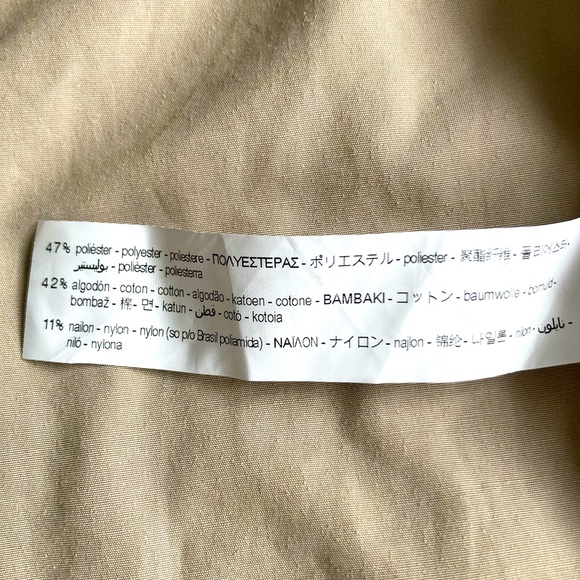 47% poliéster - polyester - poliestere - ΠΟΛΥΕΣΤΕΡΑΣ - ポリエステル - poliester - 聚酯纤维 - 폴리에스터-
بوليستير - poliéster - poliesterra
42% algodón - coton - cotton - algodão - katoen - cotone - BAMBAKI - コットン - baumwolle - cornuto-
bombaž - 棉 - 면 - katun - قطن - cotó - kotoia
11% nailon - nylon - nylon (so p/o Brasil poliamida) - ΝΑΪΛΟΝ - ナイロン - najlon - 锦纶 - 나일론 - nilon - نايلون -
niló - nylona